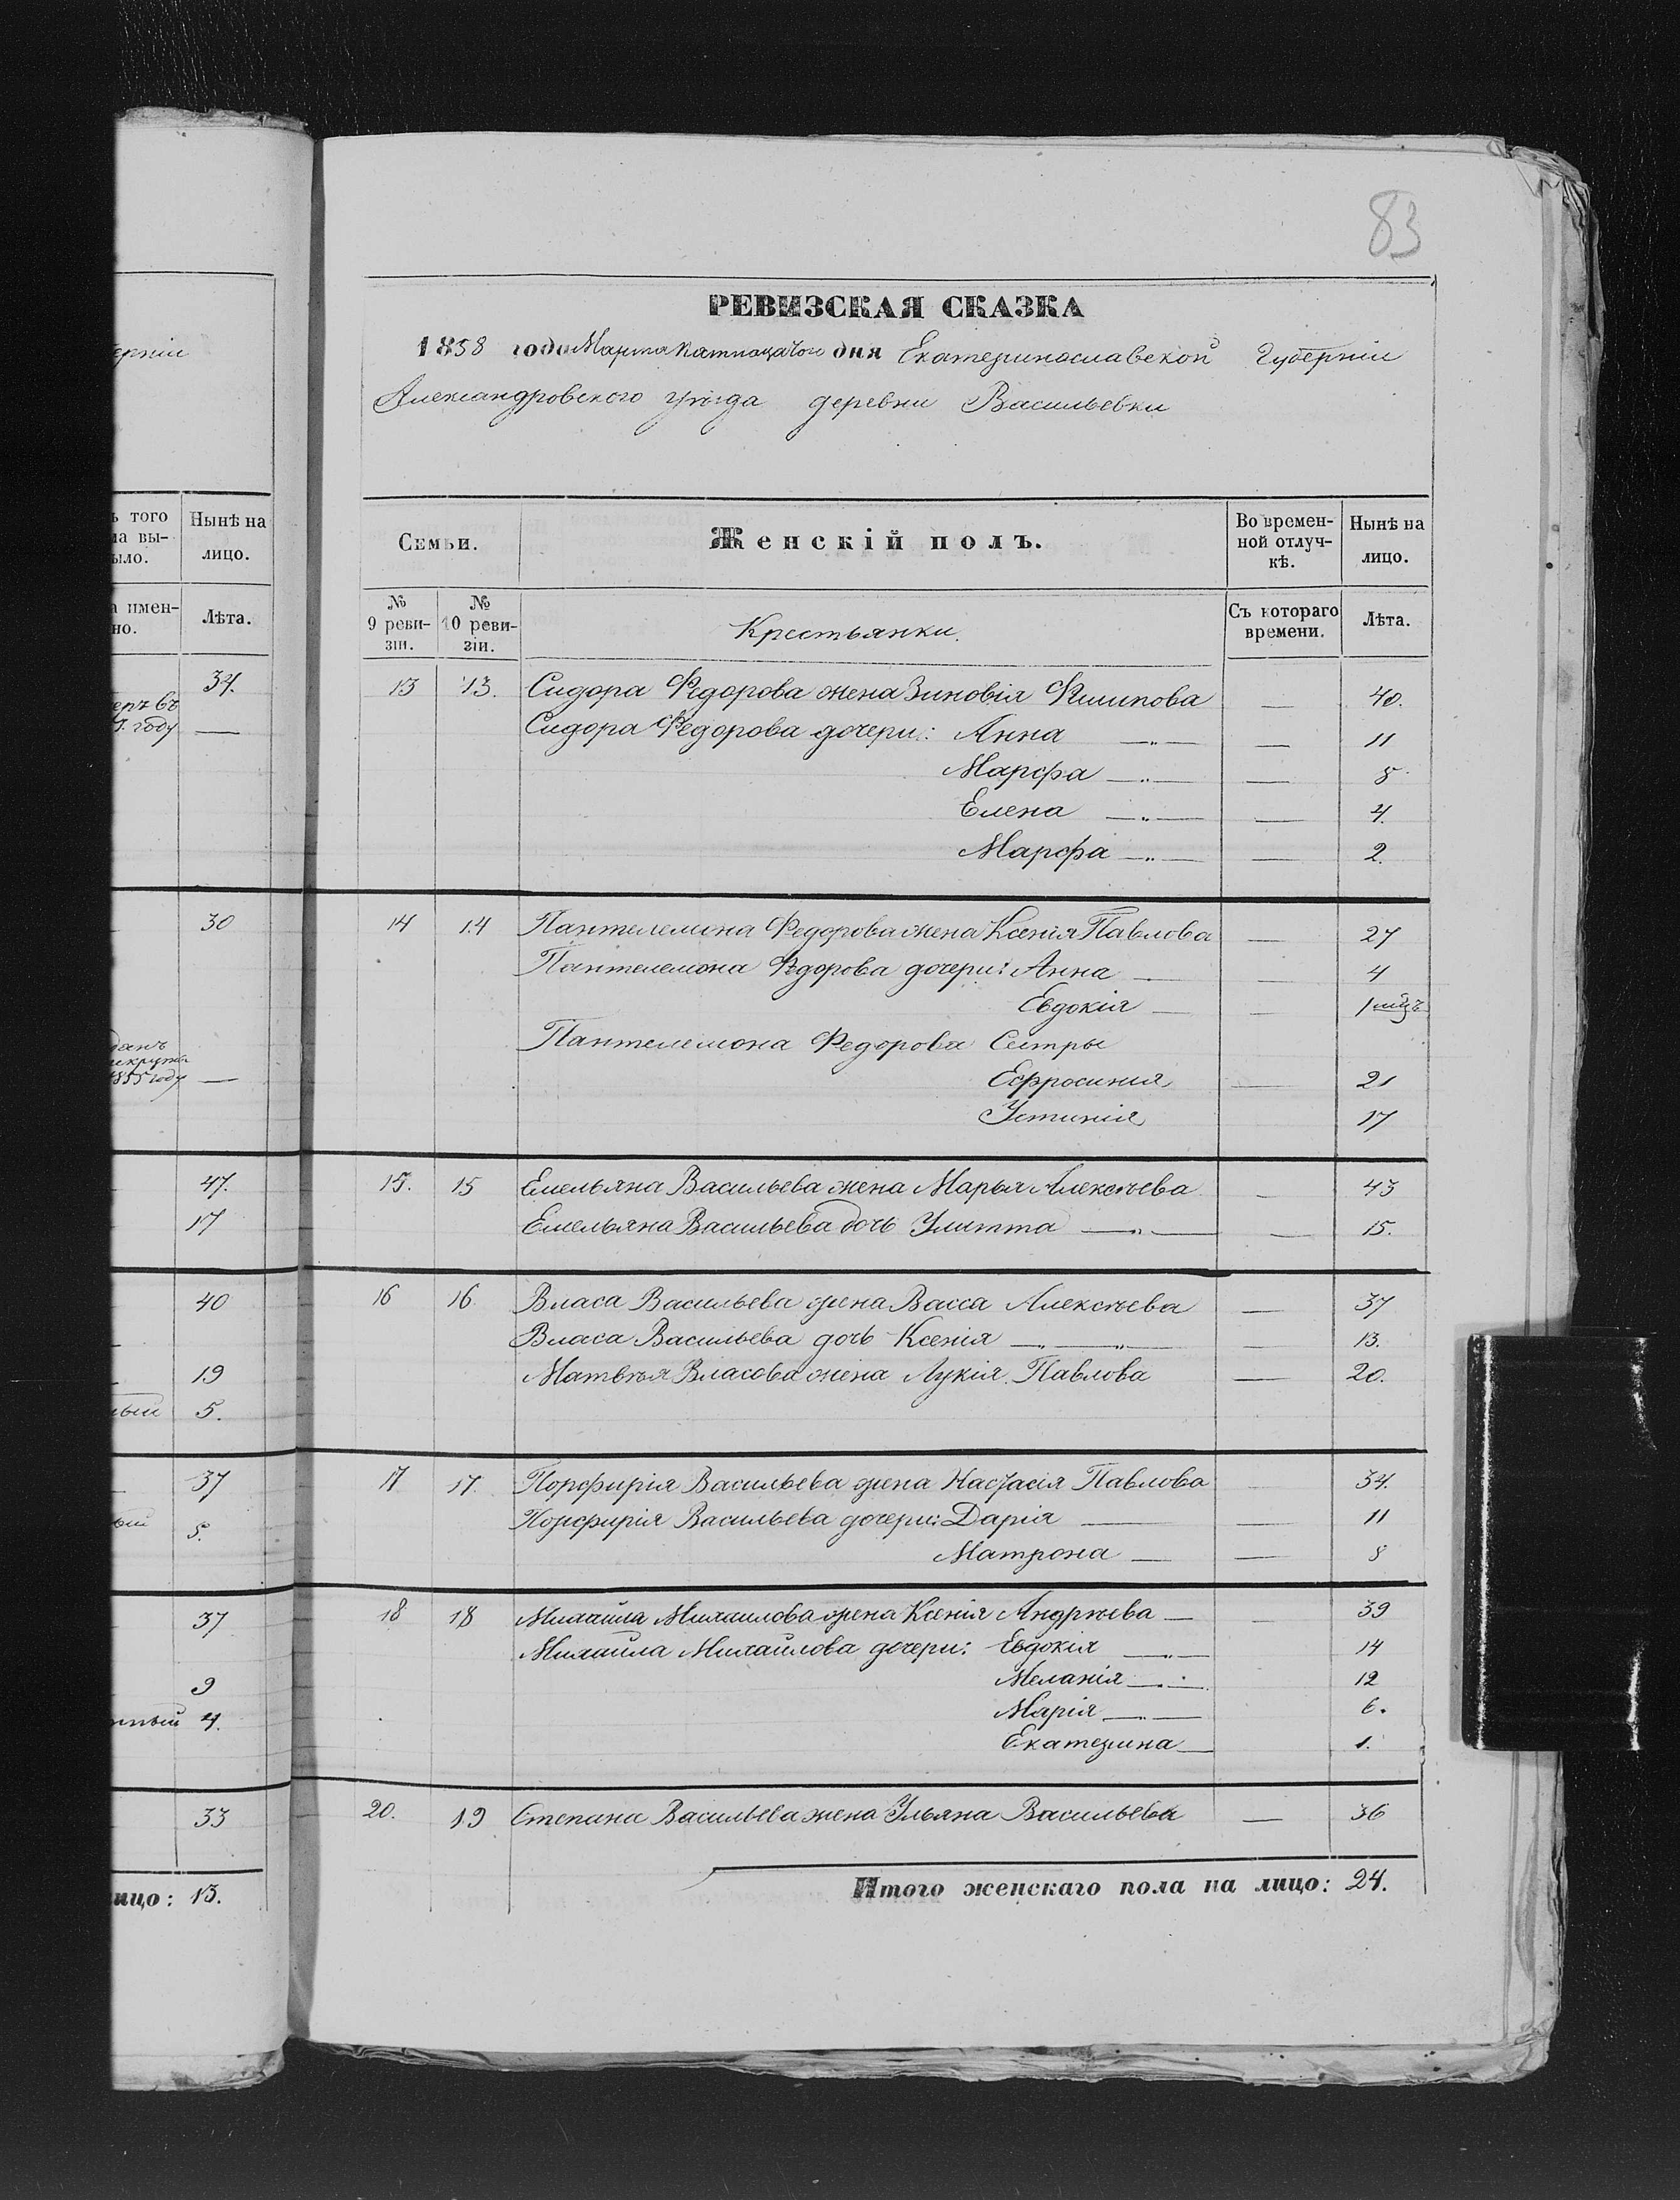 83
РЕВИЗСКАЯ СКАЗКА
1858 года Марта дня Екатеринославской Губерніи
Александровского уѣзда деревни Васильевки
ерніи
ъ того
ла вы-
ыло.
Нынѣ на
лицо.
а имен-
но.
Лѣта.
Семьи.
Женскій полъ.
Во времен-
ной отлуч-
кѣ.
Нынѣ на
лицо.
№
9 реви-
зіи.
№
10 реви-
зіи.
Крестьянки.
Съ котораго
времени.
Лѣта.
34.
еръ въ
году —
13 13. Сидора Федорова жена Зиновія Филипова — 40.
Сидора Федорова дочери: Анна —„— — 11
Марфа —„— — 8
Елена —„— — 4.
Марфа —„— — 2.
30 14 14 Пантелемона Федорова жена Ксенія Павлова — 27
Пантелемона Федорова дочери: Анна — — 4
Евдокія — — 1 мцъ
данъ
екруты
1855 году —
Пантелемона Федорова Сестры
Ефросинія — 21
Устинія 17
47. 15. 15 Емельяна Васильева жена Марья Алексѣева — 43
17 Емельяна Васильева дочь Улитта —„— — 15.
40 16 16 Власа Васильева жена Васса Алексѣева — 37
Власа Васильева дочь Ксенія —„—„— — 13.
19 Матвѣя Власова жена Лукія Павлова — 20.
ный 5.
37 17 17. Порфирія Васильева жена Настасія Павлова — 34.
ый 5. Порфирія Васильева дочери: Дарія — — 11
Матрона — — 8
37 18 18 Михайла Михаилова жена Ксенія Андрѣева — — 39
Михайла Михайлова дочери: Евдокія —„— 14
9 Меланія —„— 12
тный 4. Марія —„— 6.
Екатерина — 1.
33 20. 19 Степана Васильева жена Ульяна Васильева — 36
лицо: 13.
Итого женскаго пола на лицо: 24.